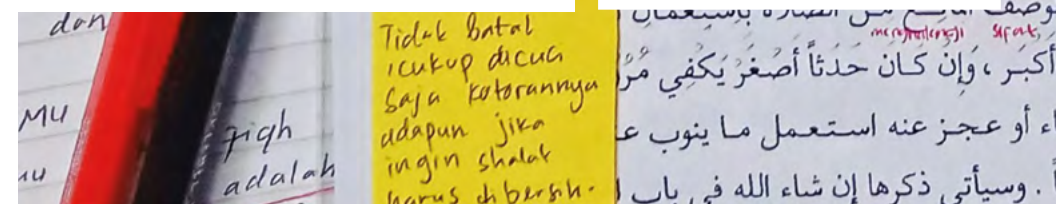 dan
MU
fiqh
adalah
Tidak batal
cukup dicuci
saja kotorannya
adapun jika
ingin shalat
harus dibersih-
sifat
أكبر ، وَإِن كَـان حَدَثاً أَصْغَرَ يَكفِي
اء أو عجز عنه استعمل ما ينوب
. وسيأتي ذكرها إن شاء الله في باب